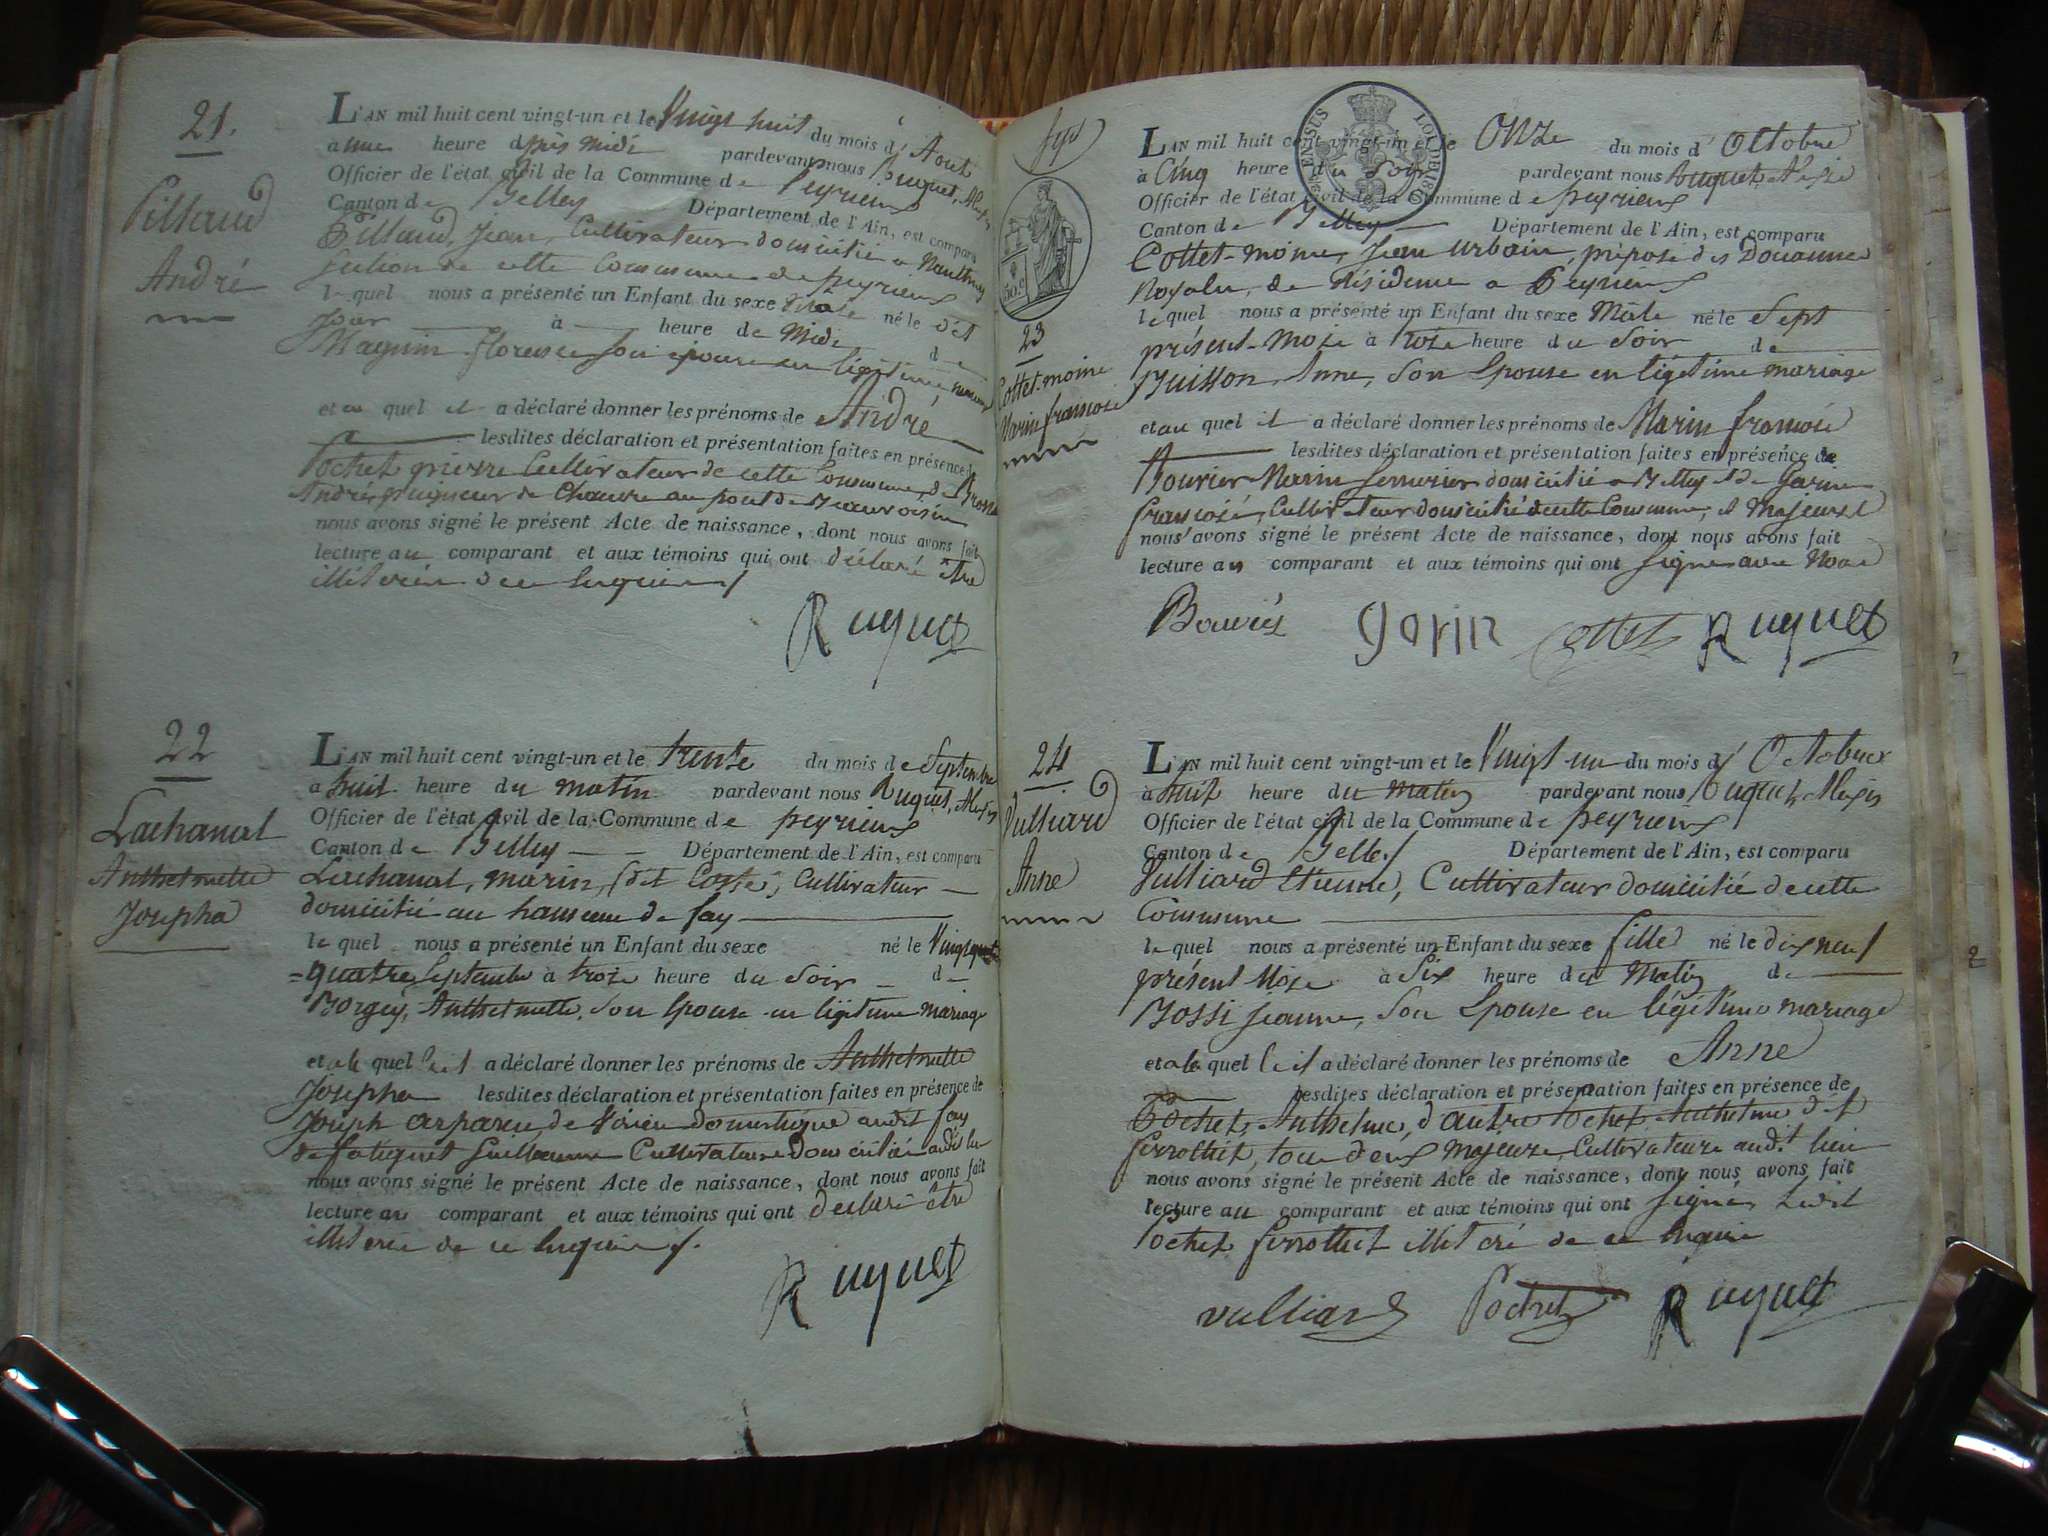 21.
Pillaud
André
L'AN mil huit cent vingt-un et le Vingt huit du mois d' Aout
à une heure après midi pardevant nous Ruquet, Alexis
Officier de l'état civil de la Commune de peyrieux
Canton de Belley Département de l'Ain, est comparu
Pillaud, Jean, Cultivateur domicilié a
section de cette Commune de peyrieux
le quel nous a présenté un Enfant du sexe Male né le d'et
Jour à heure de Midi de
Magnin florence son épouse en légitime mariage
et au quel il a déclaré donner les prénoms de André
lesdites déclaration et présentation faites en présence de
Pochet pierre Cultivateur de cette Commune, de Brosse
André, peigneur de Chanvre au pont de Beauvoisin
nous avons signé le présent Acte de naissance, dont nous avons fait
lecture au comparant et aux témoins qui ont déclaré être
de ce Enquis
Ruquet
22
Lachanal
Anthelmette
Josepha
L'AN mil huit cent vingt-un et le trente du mois de Septembre
à huit heure du matin pardevant nous Ruquet, Alexis
Officier de l'état civil de la Commune de peyrieux
Canton de Belley Département de l'Ain, est comparu
Lachanal, marin, (dit Coste), Cultivateur
domicilié au hameau de fay
le quel nous a présenté un Enfant du sexe né le Vingt
quatre Septembre à troze heure du Soir de
Borgey, Anthelmette, son Epouse en légitime mariage
et a le quel le il a déclaré donner les prénoms de Anthelmette
Josepha lesdites déclaration et présentation faites en présence de
Joseph de domestique audit fay
de Guillaume Cultivateur domicilié audit lieu
nous avons signé le présent Acte de naissance, dont nous avons fait
lecture au comparant et aux témoins qui ont déclaré être
de ce Enquis
Ruquet
50.C
23
Cottet-moine
Marin francois
L'AN mil huit cent vingt-un et le Onze du mois d' Octobre
à Cinq heure du Soir pardevant nous Ruquet Alexis
Officier de l'état civil de la Commune de peyrieux
Canton de Belley Département de l'Ain, est comparu
Cottet-moine, Jean Urbain, préposé des Douannes
Royales, de Résidence a Peyrieux
le quel nous a présenté un Enfant du sexe Mâle né le Sept
présent Moze à troze heure du Soir de
Buisson Anne, Son Epouse en légitime mariage
et au quel il a déclaré donner les prénoms de Marin francois
lesdites déclaration et présentation faites en présence de
Bouvier Marin Serrurier domicilié a Belley et de Garin
francois, Cultivateur domicilié de cette Commune, et Majeurs
nous avons signé le présent Acte de naissance, dont nous avons fait
lecture au comparant et aux témoins qui ont Signés avec Nous
Bouvier gorin Cottet Ruquet
24
Vulliard
Anne
L'AN mil huit cent vingt-un et le Vingt-un du mois d' Octobre
à huit heure du Matin pardevant nous Ruquet, Alexis
Officier de l'état civil de la Commune de peyrieux
Canton de Belley Département de l'Ain, est comparu
Vulliard Etienne, Cultivateur domicilié de cette
Commune
le quel nous a présenté un Enfant du sexe fille né le dix neuf
présent Moze à Six heure du Matin de
Bossi Jeanne, Son Epouse en légitime mariage
et a le quel le il a déclaré donner les prénoms de Anne
lesdites déclaration et présentation faites en présence de
Pochet, Anthelme, d'autre Pochet Anthelme dit
tous deux Majeurs, Cultivateurs audit lieu
nous avons signé le présent Acte de naissance, dont nous avons fait
lecture au comparant et aux témoins qui ont Signés, Ledit
Pochet de ce Enquis
vulliard Pochet Ruquet